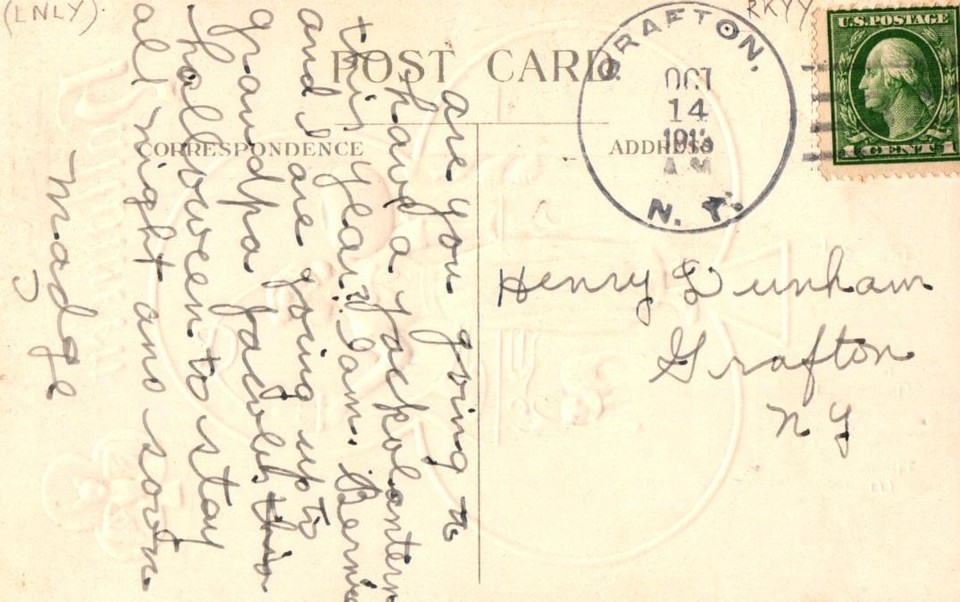 (LNLY).
RKYY
U.S. POSTAGE
1 CENT 1
POST CARD
CORRESPONDENCE
ADDRESS
GRAFTON,
OCT
14
A.M.
N. Y.
Henry Dunham
Grafton
N Y
are you going to
have a jackolantern
this year? I am. Bernie
and I are going up to
grandpa Jacobs this
holloween to stay
all night and soon
Madge